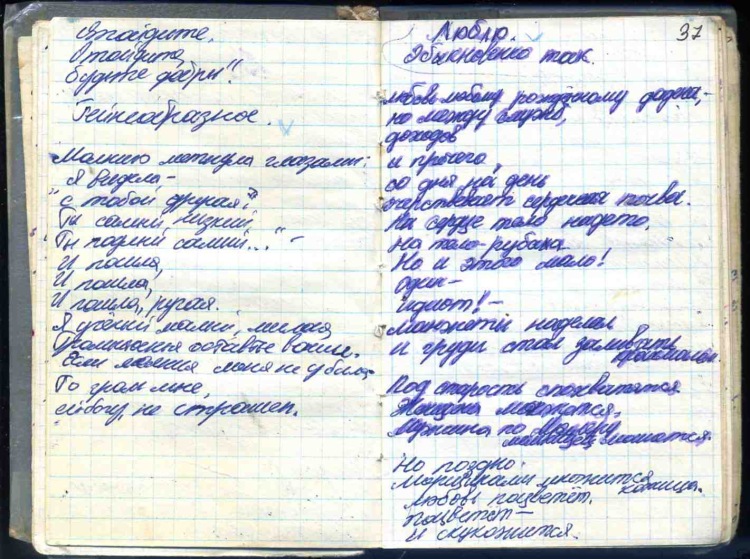 Отойдите.
Отойдите,
будьте добры".
Гейнеобразное.
Молнию метнула глазами:
"Я видела –
с тобой другая.
Ты самый низкий,
Ты подлый самый..." –
И пошла,
И пошла,
И пошла, ругая.
Я учёный малый, милая,
Громыханья оставьте ваши.
Если молния меня не убила,
То гром мне,
ей-богу, не страшен.
37
Люблю.
Обыкновенно так.
Любовь любому рождённому дадена, –
но между служб,
доходов
и прочего
со дня на день
очерствевает сердечная почва.
На сердце тело надето,
на тело – рубаха.
Но и этого мало!
Один –
идиот! –
манжеты наделал
и груди стал заливать
крахмалом.
Под старость спохватятся.
Женщина мажется.
Мужчина по Мюллеру
мельницей машется.
Но поздно.
Морщинами множится
кожица.
Любовь поцветёт,
поцветёт –
и скукожится.